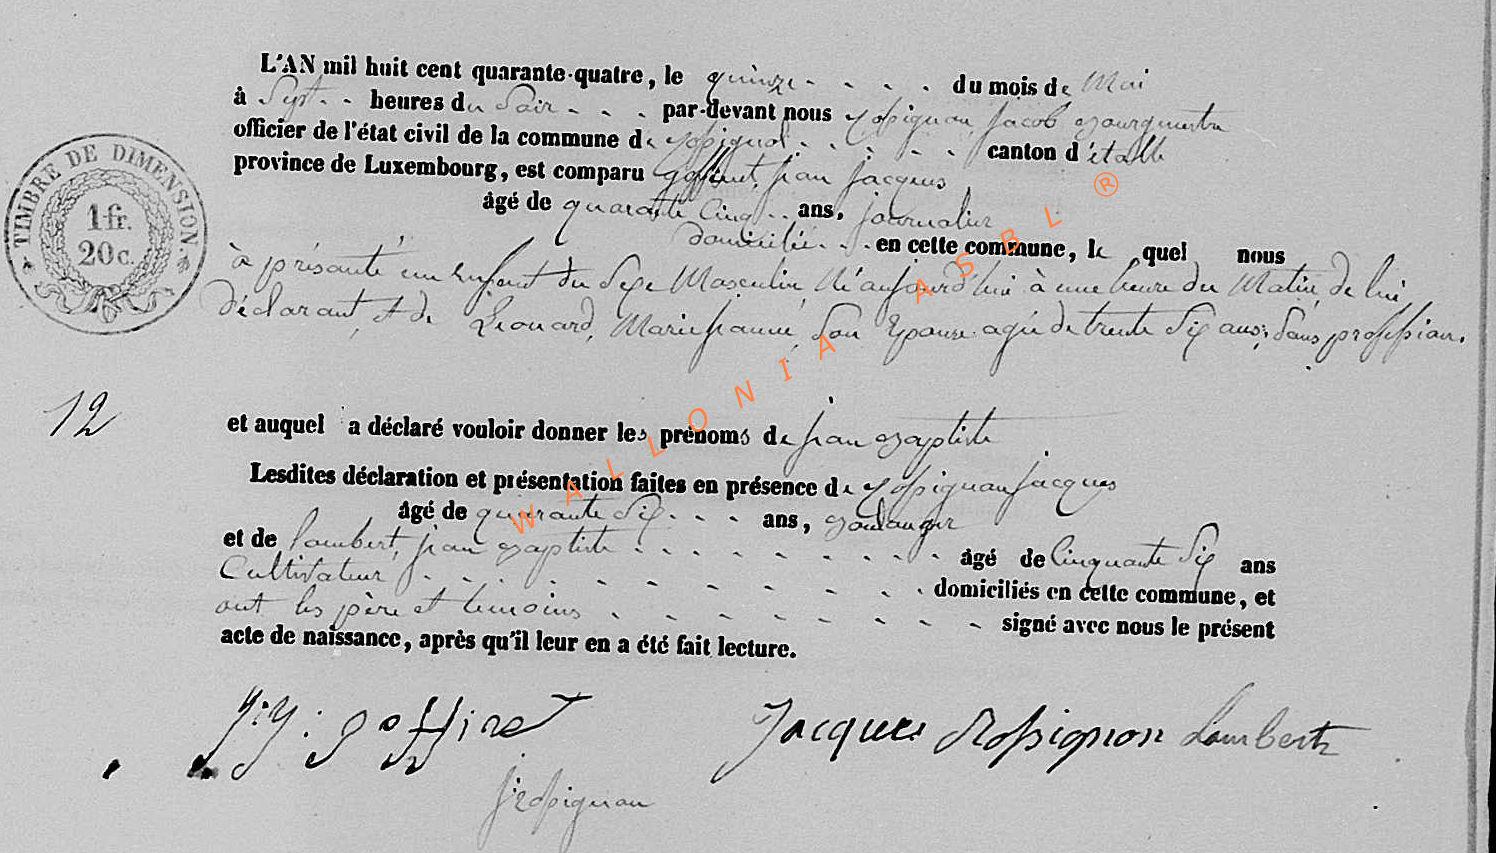 L'AN mil huit cent quarante-quatre, le quinze . . . . du mois de Mai
à Sept . . heures du Soir . . . par-devant nous Rossignon, Jacob Bourgmestre
officier de l'état civil de la commune de Rossignol . . . . . . canton d'étalle
province de Luxembourg, est comparu Goffinet, jean jacques
âgé de quarante Cinq . . ans, journalier
domicilié . . . en cette commune, lequel nous
à présenté un Enfant du Sexe Masculin, Né aujourd'hui à une heure du Matin, de lui
déclarant, et de Léonard, Marie jeanne, Son Epouse agée de trente Six ans; Sans profession.
12
et auquel a déclaré vouloir donner les prénoms de jean Baptiste
Lesdites déclaration et présentation faites en présence de Rossignon jacques
âgé de quarante Six . . . . ans, Boulanger
et de Lambert, jean Baptiste . . . . . . . . . âgé de Cinquante Six ans
Cultivateur . . . . . . . . . . domiciliés en cette commune, et
ont les père et temoins . . . . . . . . signé avec nous le présent
acte de naissance, après qu'il leur en a été fait lecture.
j:j: goffinet
Jacques Rossignon
Lambert
j Rossignon
TIMBRE DE DIMENSION.
1 fr.
20 c.
WALLONIA ASBL ®